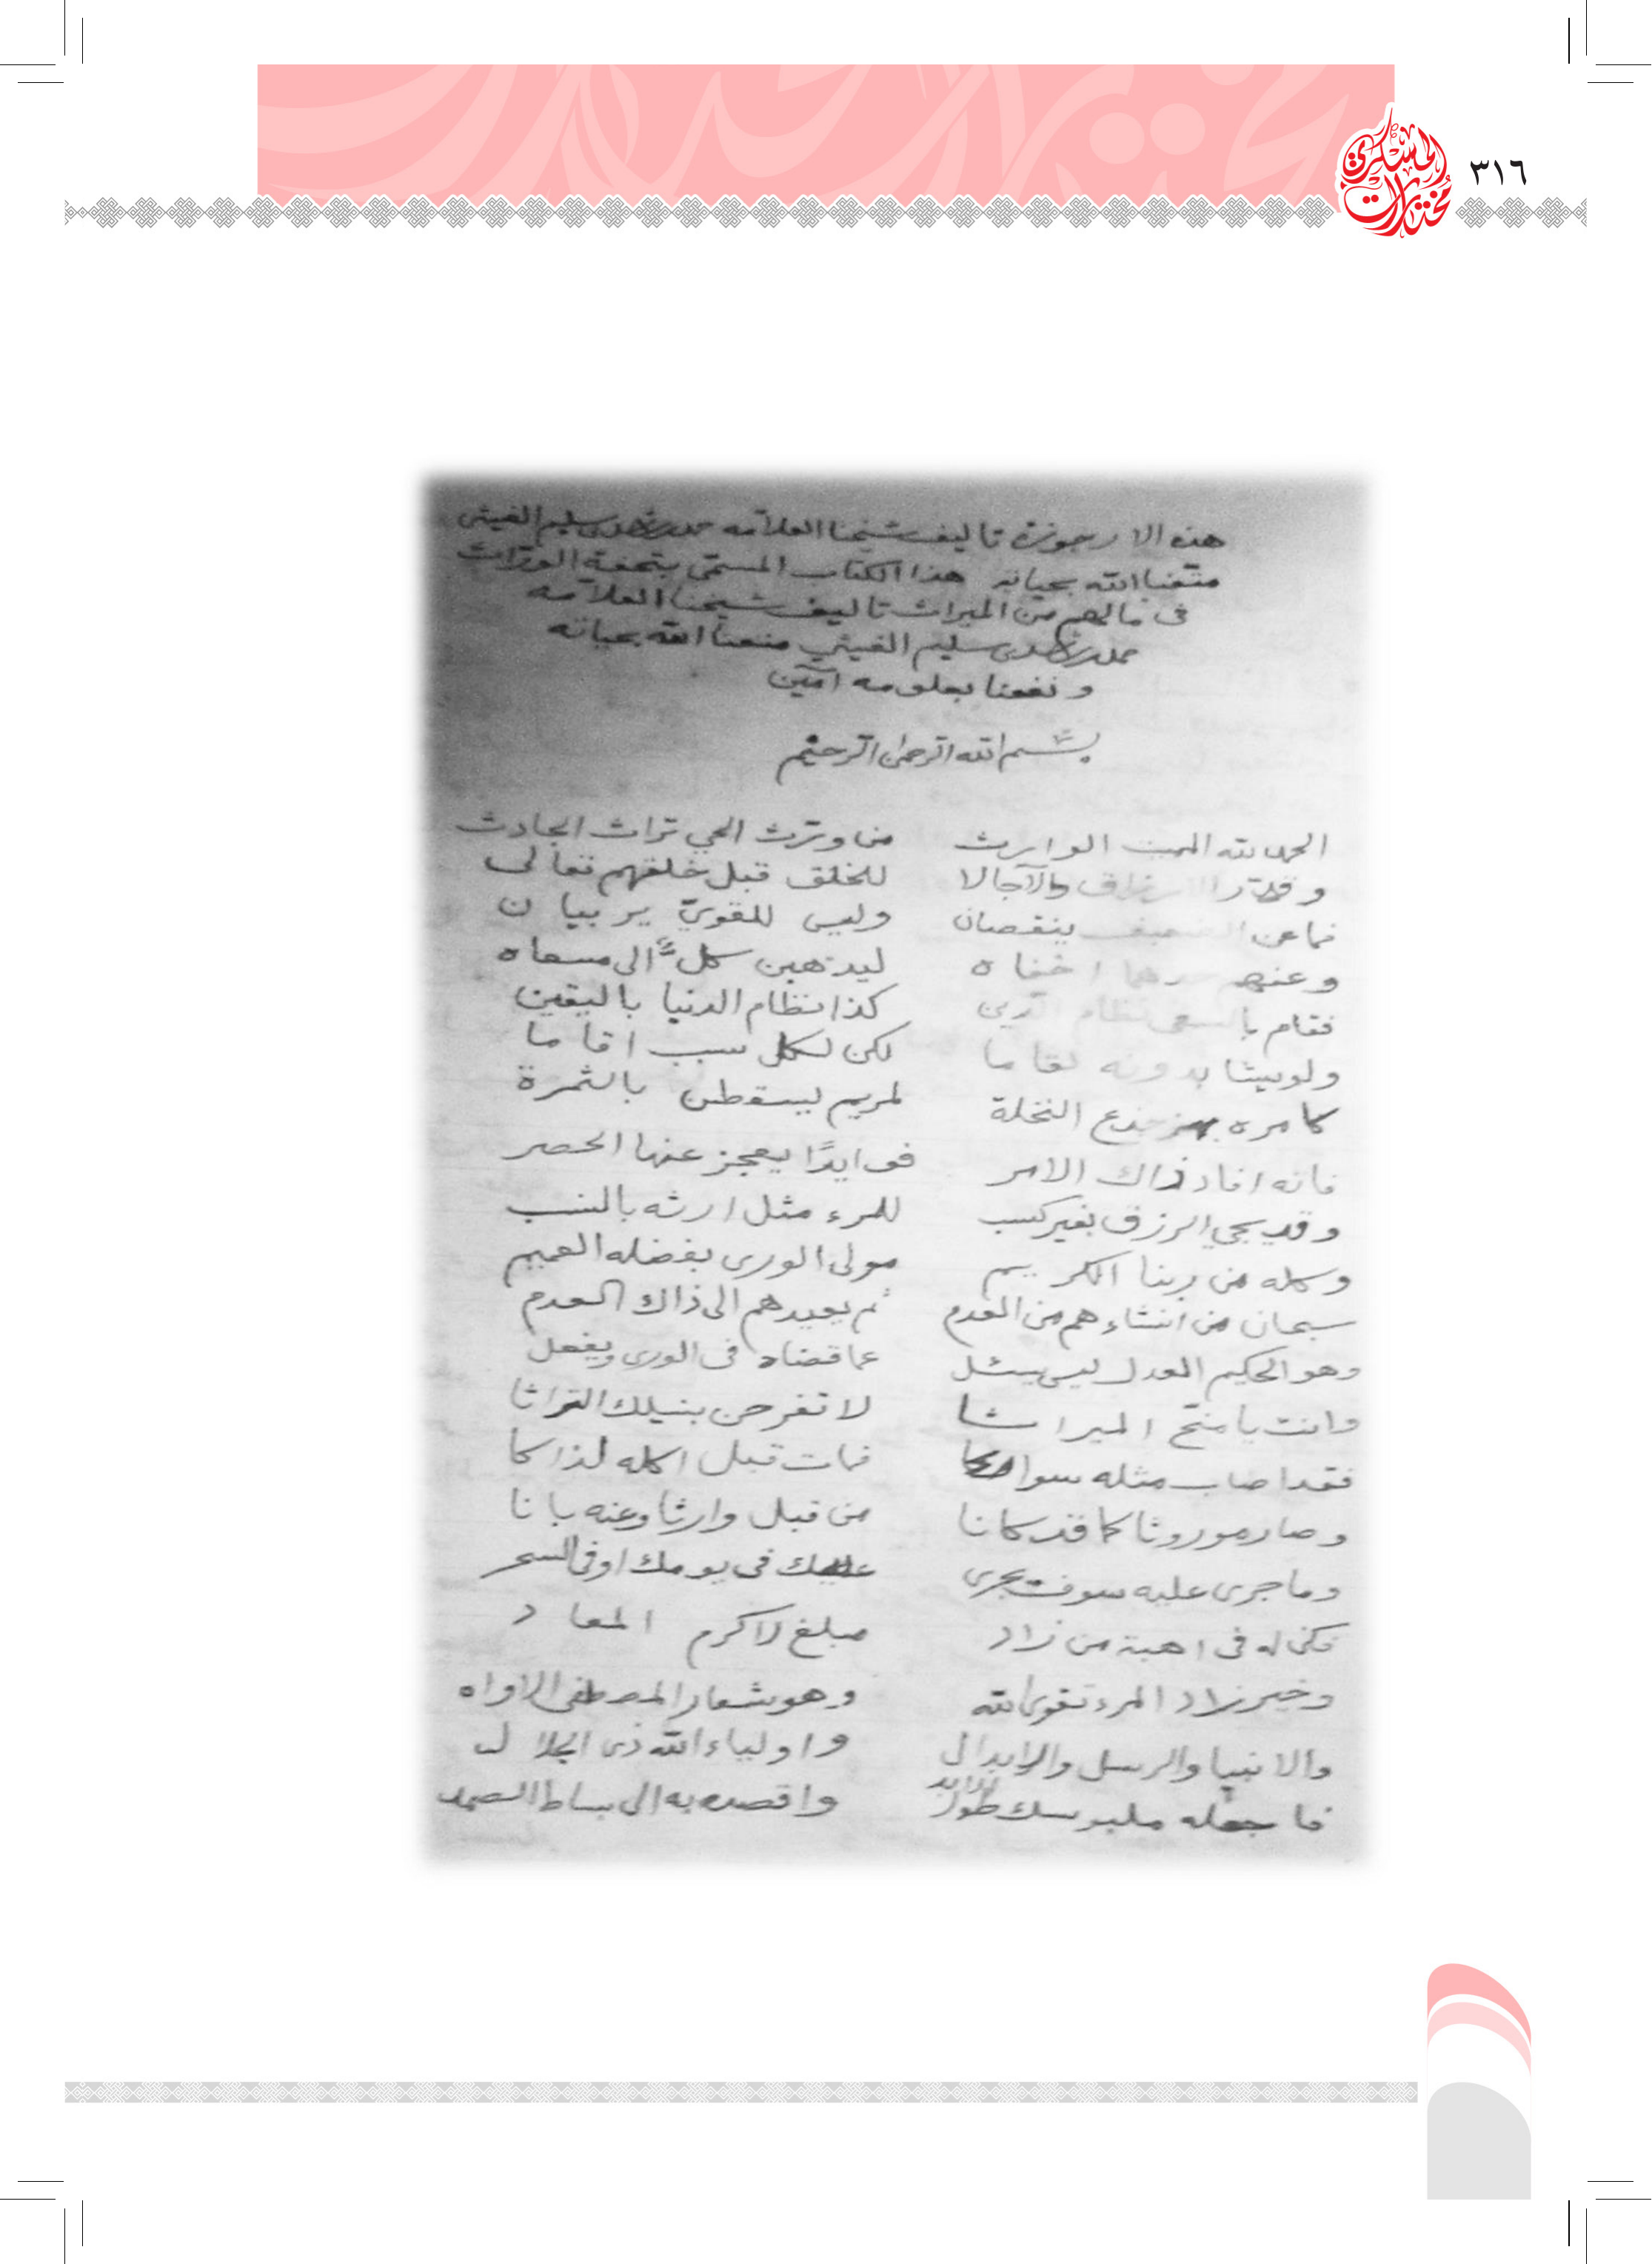 مختارات العسكري
٣١٦
هذه الارجوزة تاليف شيخنا العلامه سليم الغيثي
متعنا الله بحياته هذا الكتاب المسمى بتحفة الوراث
فى مالهم من الميراث تاليف شيخنا العلامه
سليم الغيثي متعنا الله بحياته
ونفعنا بعلومه آمين
بسم الله الرحمن الرحيم
الحمد لله المميت الوارث من ورّث الحي تراث الحادث
وقدّر الارزاق والآجالا للخلق قبل خلقهم تعالى
فما عن الضعيف ينقصان وليس للقويّ يربيان
وعنهم اخفاه ليذهبن كلٌّ الى مسعاه
فقام بالسعى نظام الدين كذا نظام الدنيا باليقين
ولو يشا بدونه لقاما لكن لكل سبب اقاما
كامره بهز جذع النخلة لمريم ليسقطن بالثمرة
فانه افاد ذاك الامر فوايدًا يعجز عنها الحصر
وقد يجي الرزق بغير كسب للمرء مثل ارثه بالنسب
وكله من ربنا الكريم مولى الورى بفضله العميم
سبحان من انشاءهم من العدم ثم يعيدهم الى ذاك العدم
وهو الحكيم العدل ليس يسئل عما قضاه فى الورى ويفعل
وانت يا من الميراثا لا تفرحن بنيلك التراثا
فقد اصاب مثله سواكا فمات قبل اكله لذاكا
وصار موروثا كما قد كانا من قبل وارثا وعنه بانا
وما جرى عليه سوف يجرى عليك فى يومك او فى السحر
فكن له فى اهبة من زاد مبلغ لاكرم المعاد
وخير زاد المرء تقوى الله وهو شعار المصطفى الاواه
والانبيا والرسل والابدال واولياء الله ذى الجلال
فاجعله ملبوسك طول الابد واقصد به الى بساط الصمد